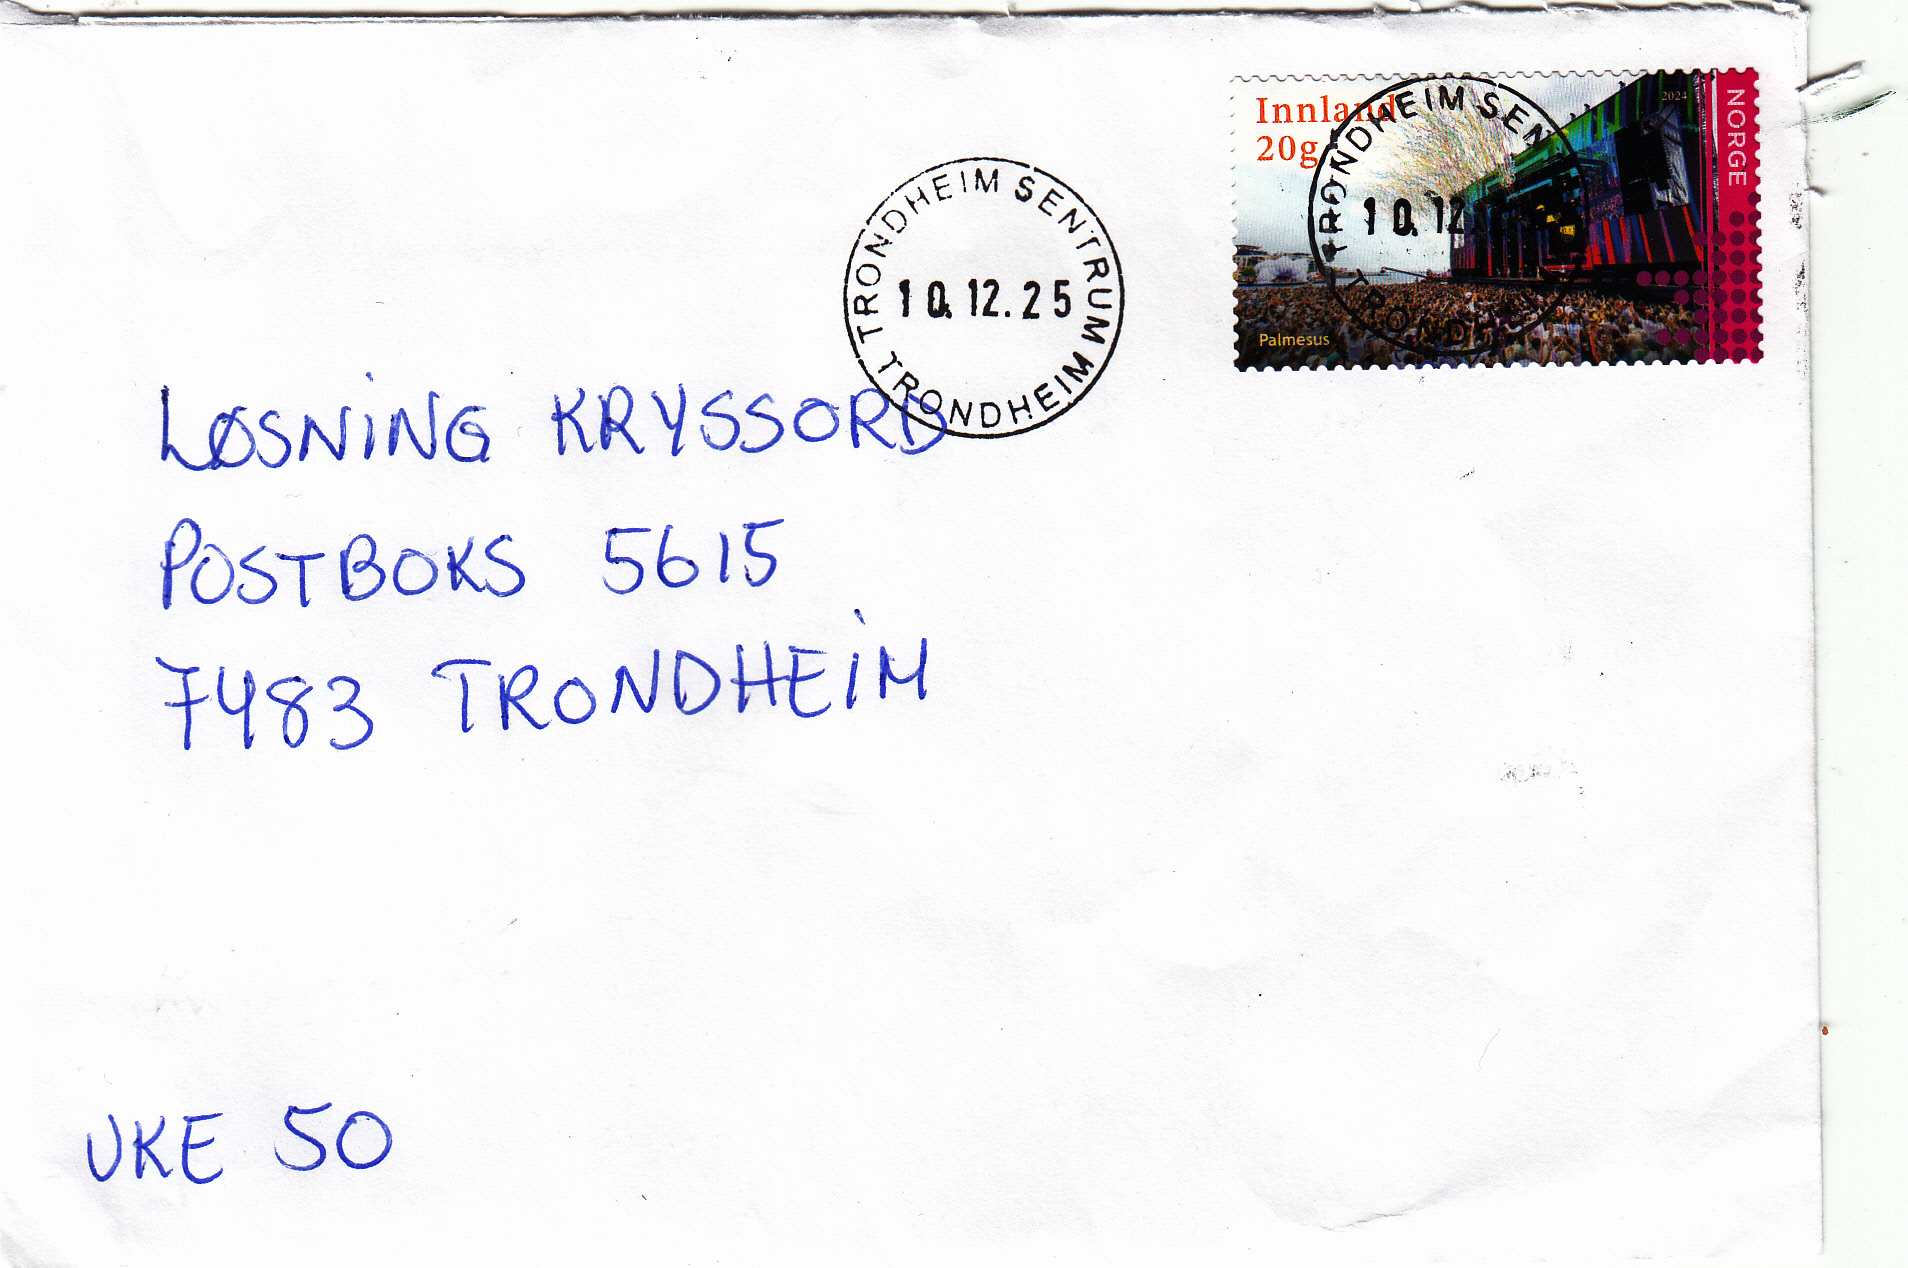 Innland
20g
2024
NORGE
Palmesus
TRONDHEIM SEN
10.12
TRONDHEI
TRONDHEIM SENTRUM
10.12.25
TRONDHEIM
LØSNING KRYSSORD
POSTBOKS 5615
7483 TRONDHEIM
UKE 50